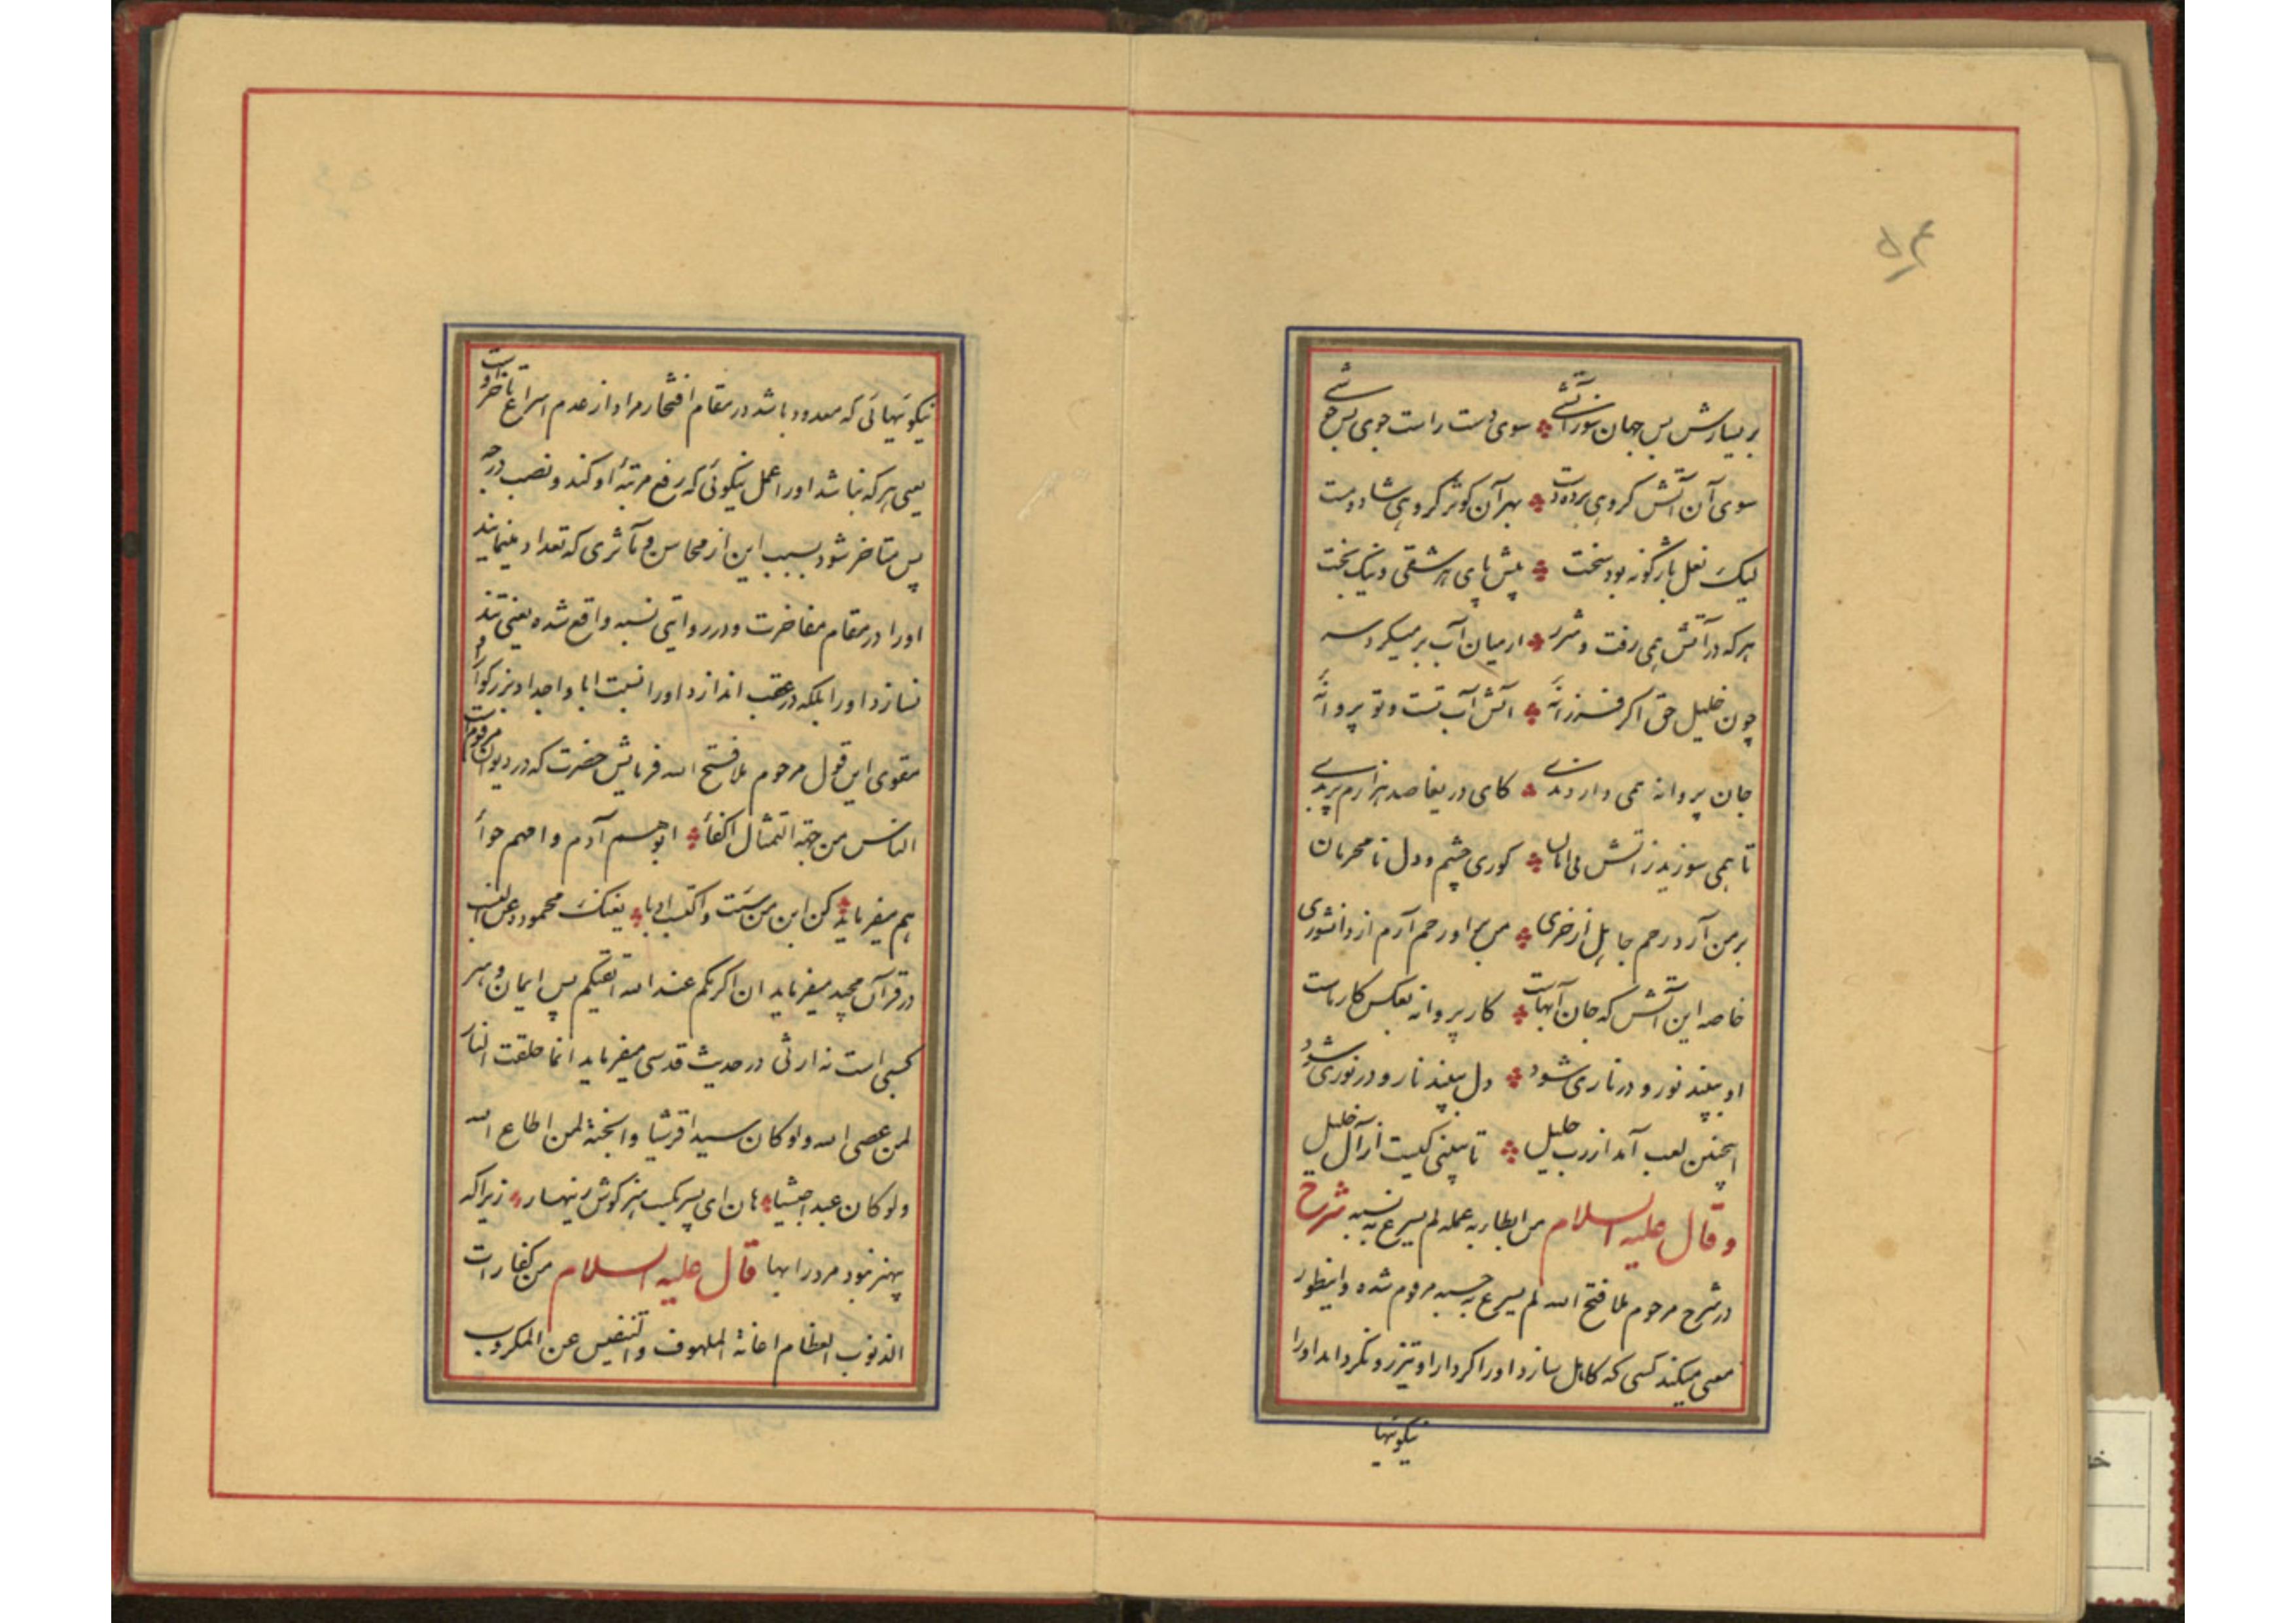 ۵۴
بر یسارش بس جهان سوز آتشی سوی دست راست جوی بس خوشی
سوی آن آتش گروهی برده دست بهر آن کوثر گروهی شاد و مست
لیک نعل بازگونه بود سخت پیش پای هر شقی و نیک بخت
هر که در آتش همی رفت و شرر از میان آب بر میکرد سر
چون خلیل حق اگر فرزانهٔ آتش آب تست و تو پروانهٔ
جان پروانه همی دارد ندی کای دریغا صد هزارم پر بدی
تا همی سوزید ز آتش بی امان کوری چشم و دل نامحرمان
بر من آرد رحم جاهل از خری من بر او رحم آرم از دانشوری
خاصه این آتش که جان آبهاست کار پروانه بعکس کار ماست
او ببیند نور و در ناری شود دل ببیند نار و در نوری شود
اینچنین لعب آمد از رب جلیل تا ببینی کیست از آل خلیل
و قال علیه السلام من ابطا به عمله لم یسرع به نسبه شرح
در شرح مرحوم ملا فتح الله لم یسرع به حسبه مرقوم شده و اینطور
معنی میکند کسی که کاهل سازد او را کردار او تیز رو نگرداند او را
نیکوئیها
نیکوئیهائی که معدود باشد در مقام افتخار مراد از عدم اسراع تأخر اوست
یعنی هر که نباشد او را عمل نیکوئی که رفع مرتبهٔ او کند و نصب درجه
پس متاخر شود بسبب این از محاسن و مآثری که تعداد مینمایند
او را در مقام مفاخرت و در روایتی نسبه واقع شده یعنی تند
نسازد او را بلکه در عقب اندازد او را نسبت ابا و اجداد بزرگوار او
مقوی این قول مرحوم ملا فتح الله فرمایش حضرت که در دیوان مرقومست
الناس من جهة التمثال اکفأ ابوهم آدم و امهم حوأ
هم میفرماید کن ابن من شئت و اکتسب ادبا یغنیک محموده عن النسب
در قرآن مجید میفرماید ان اکرمکم عند الله اتقیکم پس ایمان و هنر
کسبی است نه ارثی در حدیث قدسی میفرماید انما خلقت النار
لمن عصی الله ولو کان سیدا قرشیا و الجنة لمن اطاع الله
ولو کان عبدا حبشیا هان ای پسر بکسب هنر کوش زینهار زیرا که
بهنر نبود مرد را بها قال علیه السلام من کفارات
الذنوب العظام اغاثة الملهوف و التنفیس عن المکروب